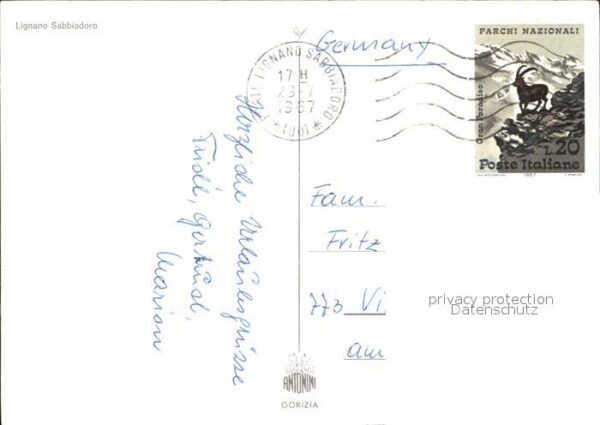 Lignano Sabbiadoro
Germany
LIGNANO SABBIADORO
17 H
1967
*(UD)*
PARCHI NAZIONALI
Gran Paradiso
L.20
Poste Italiane
1967
Herzliche Urlaubsgrüsse
Fridl, Gertrud,
Marion
Fam.
Fritz
773 Vi
am
privacy protection
Datenschutz
ANTONINI
GORIZIA